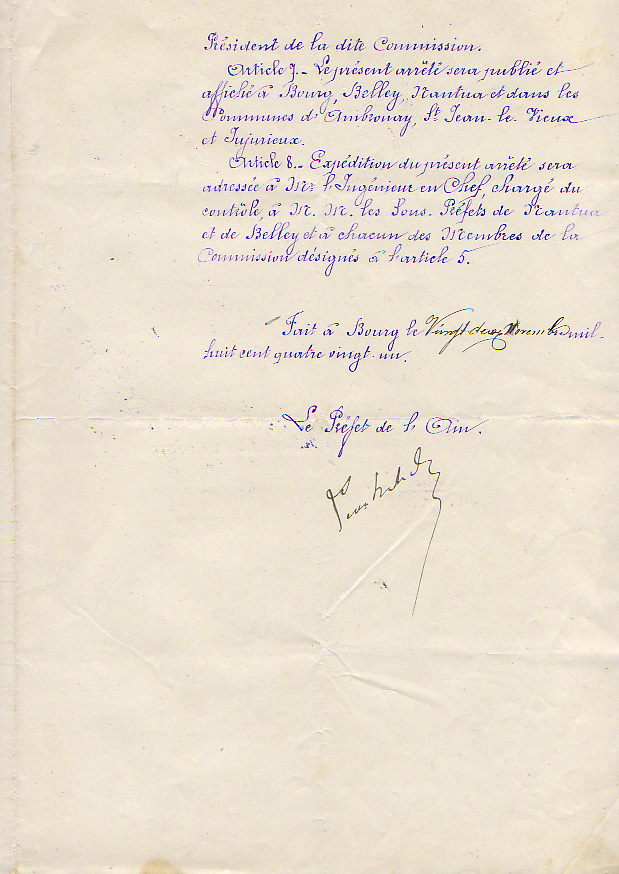 Président de la dite Commission.
Article 7._ Le présent arrêté sera publié et
affiché à Bourg, Belley, Nantua et dans les
Communes d'Ambronay, St Jean-le-Vieux
et Jujurieux.
Article 8._ Expédition du présent arrêté sera
adressée à Mr l'Ingénieur en Chef, chargé du
contrôle, à M.M. les Sous-Préfets de Nantua
et de Belley et à chacun des Membres de la
Commission désignés à l'article 5.
Fait à Bourg le Vingt deux Novembre mil-
huit cent quatre vingt-un.
Le Préfet de l'Ain.